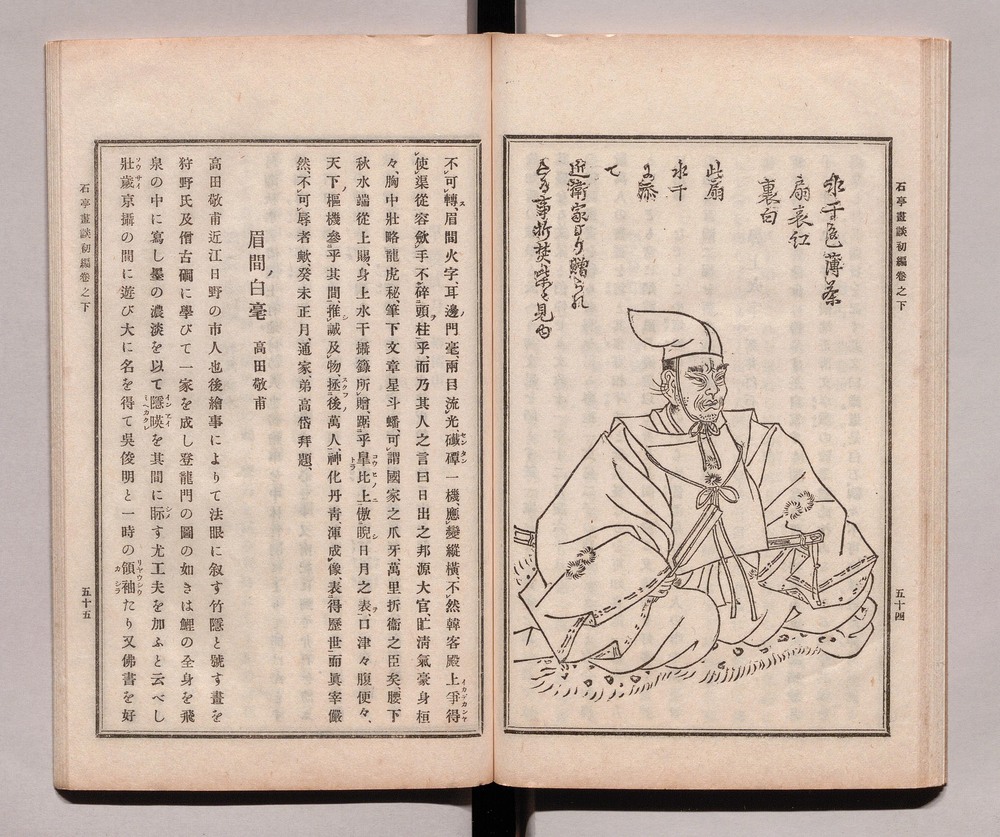 石亭畫談初編卷之下
五十四
水干色薄茶
扇表紅
裏白
此扇
水干
て
近衛家より贈られ
不可轉、眉間火字、耳邊門毫、兩目流光、礒磹一機應變縱橫、不然韓客殿上爭得
使渠從容歛手不碎頭柱乎、而乃其人之言曰日出之邦源大官、貯淸氣豪身桓
々、胸中壯略龍虎秘、筆下文章星斗蟠、可謂國家之爪牙萬里折衝之臣矣、腰下
秋水端從上賜、身上水干攝籙所贈、踞乎皐比上傲睨日月之表、口津々腹便々、
天下樞機參乎其間、推誠及物、拯後萬人、神化丹靑、渾成像表、得歷世而眞宰儼
然、不可辱者歟、癸未正月、通家弟高岱拜題、
眉間白毫 高田敬甫
高田敬甫近江日野の市人也後繪事によりて法眼に叙す竹隱と號す畫を
狩野氏及僧古磵に學びて一家を成し登龍門の圖の如きは鯉の全身を飛
泉の中に寫し墨の濃淡を以て隱暎を其間に際す尤工夫を加ふと云べし
壯歲京攝の間に遊び大に名を得て吳俊明と一時の領袖たり又佛書を好
石亭畫談初編卷之下
五十五